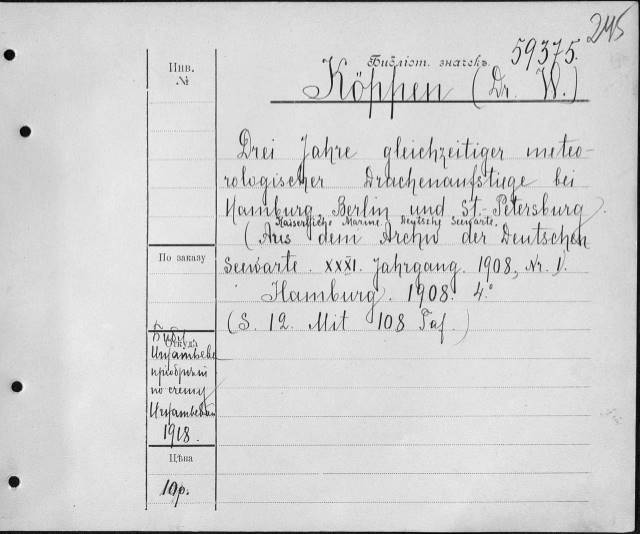 245
59375.
Инв.
№
Библіот. значекъ.
Köppen (Dr. W.)
Drei Jahre gleichzeitiger meteo-
rologischer Drachenaufstiege bei
Hamburg, Berlin und St.-Petersburg.
Kaiserliche Marine. Deutsche Seewarte.
(Aus dem Archiv der Deutschen
Seewarte. XXXI. Jahrgang. 1908, Nr. 1).
Hamburg. 1908. 4°
(S. 12. Mit 108 Taf.)
По заказу
Откуда
Библ.
Игнатьева
по счету
Игнатьева
1918.
Цѣна
10р.